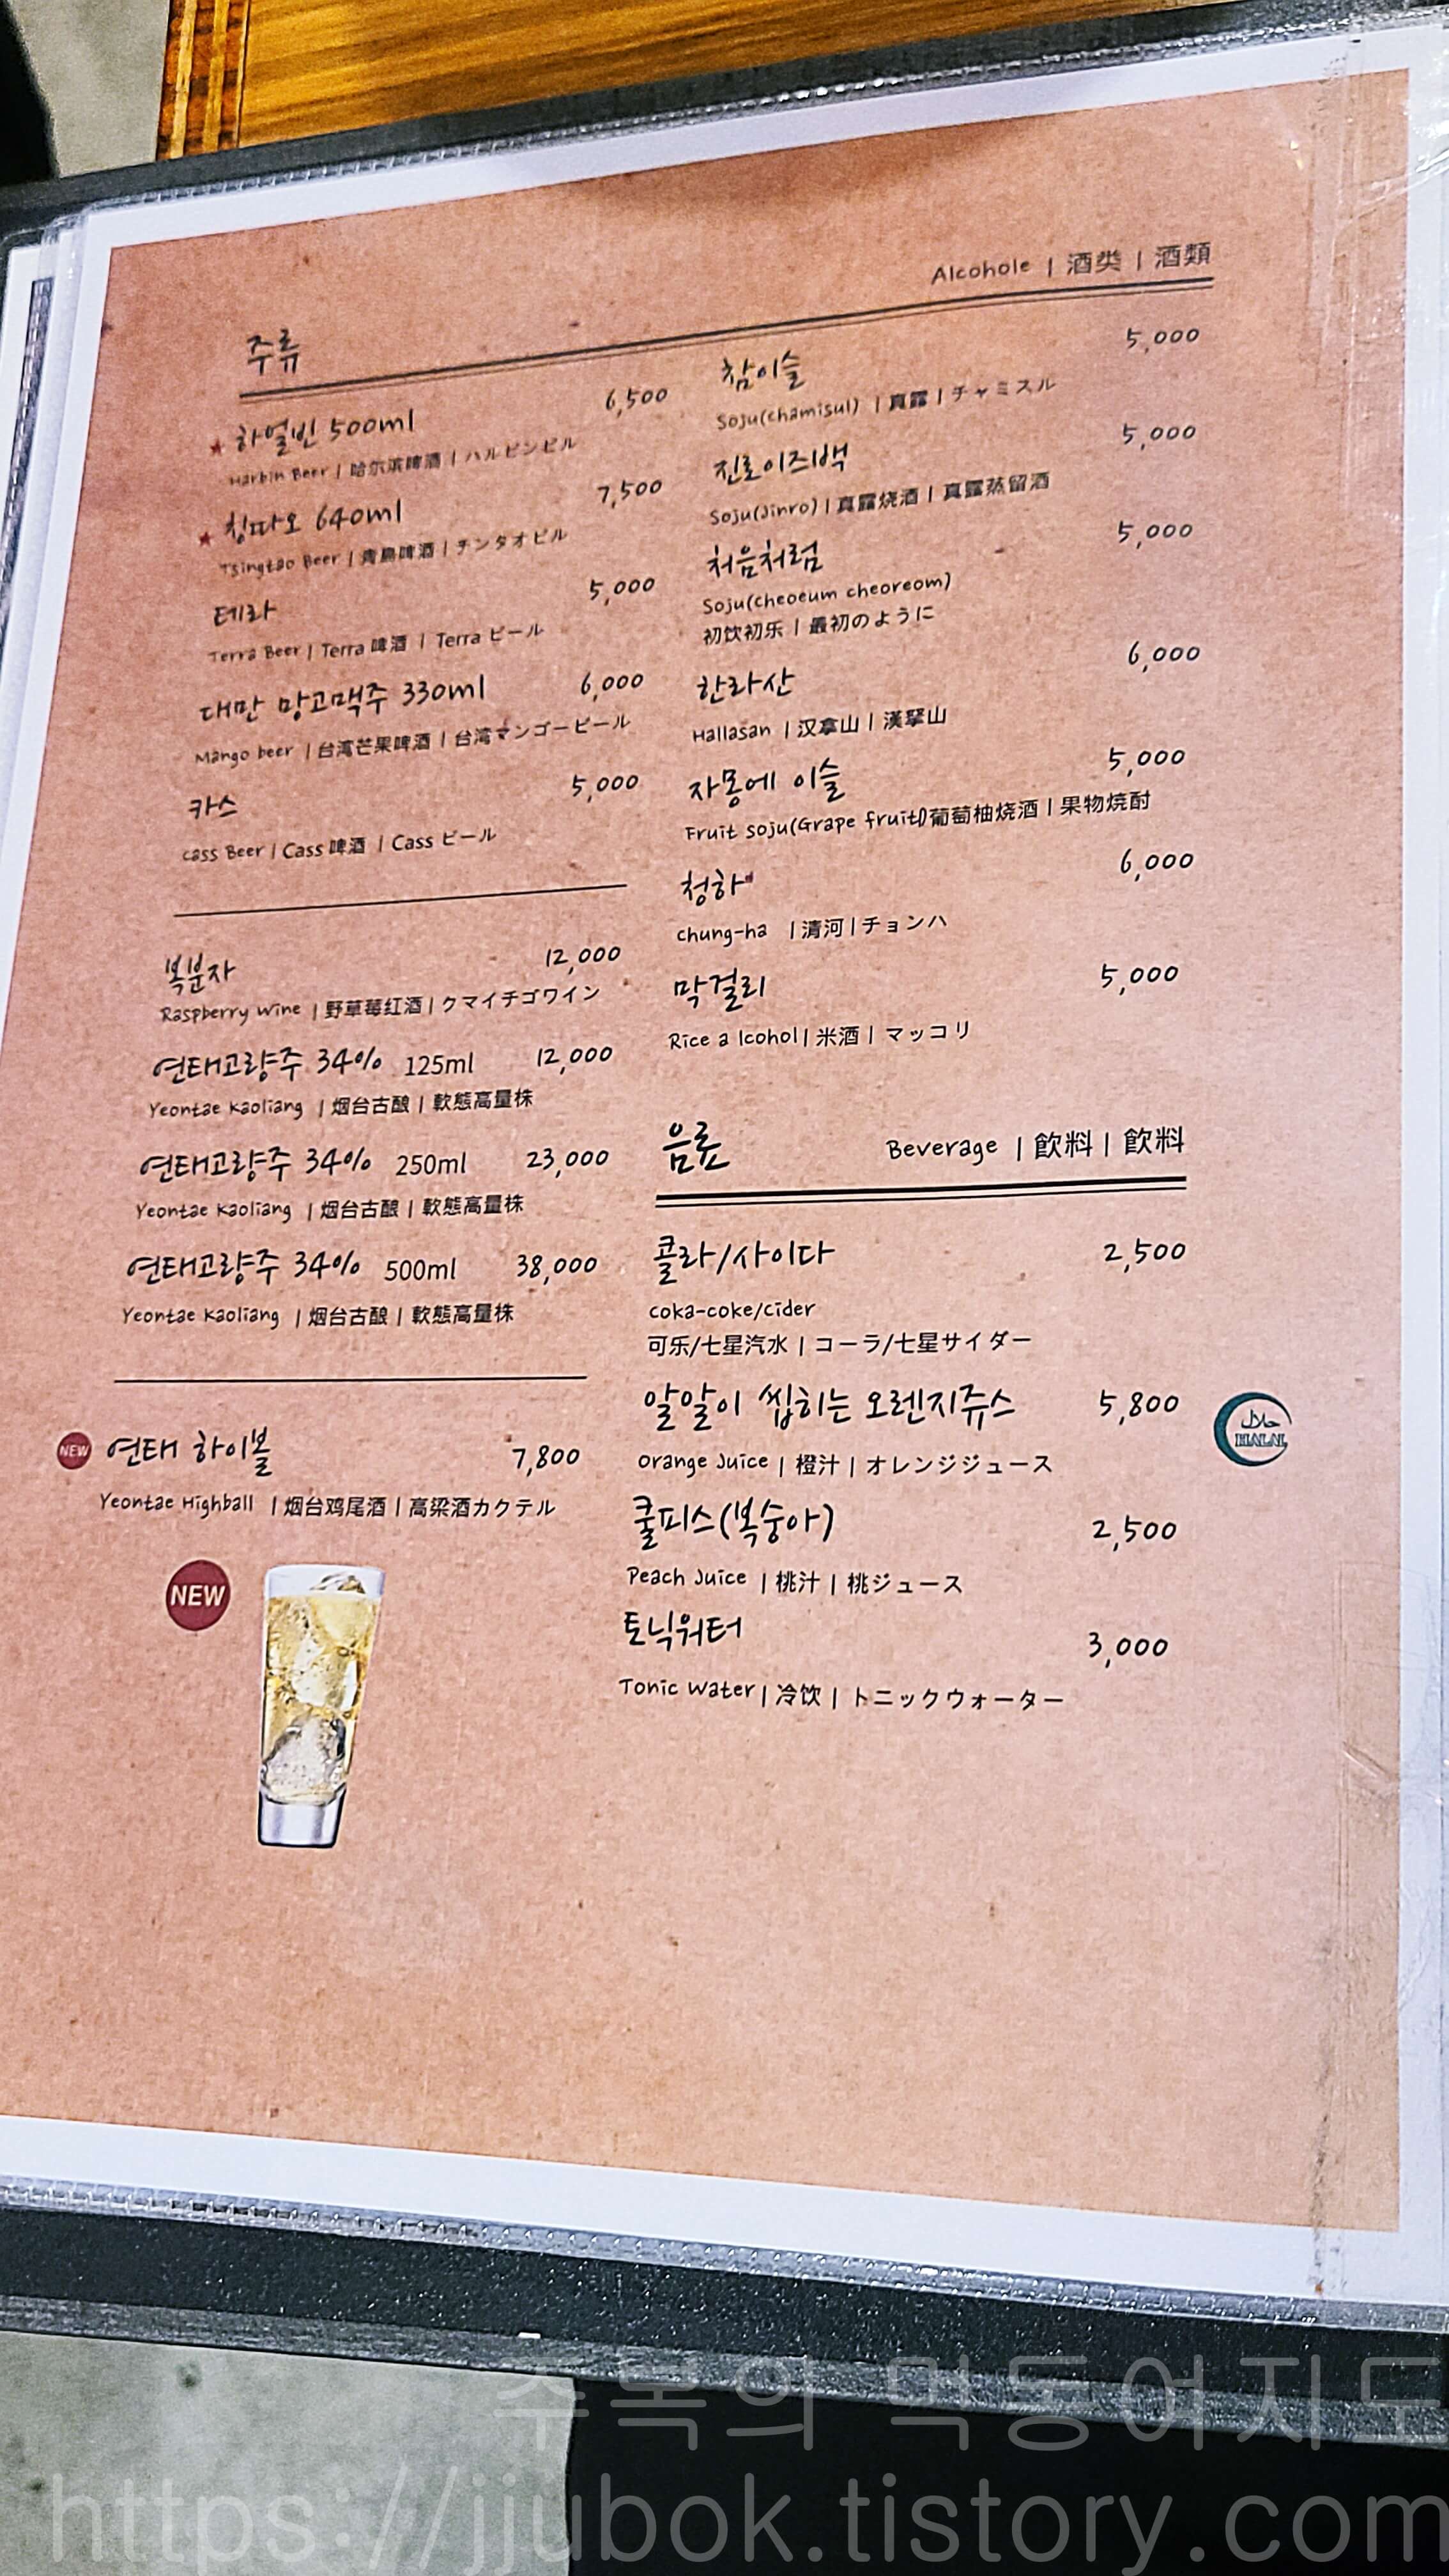 주류
Alcohole | 酒类 | 酒類
★ 하얼빈 500ml 6,500
Harbin Beer | 哈尔滨啤酒 | ハルビンビル
★ 칭따오 640ml 7,500
Tsingtao Beer | 青島啤酒 | チンタオビル
테라 5,000
Terra Beer | Terra 啤酒 | Terra ビール
대만 망고맥주 330ml 6,000
Mango beer | 台湾芒果啤酒 | 台湾マンゴービール
카스 5,000
Cass Beer | Cass 啤酒 | Cass ビール
복분자 12,000
Raspberry Wine | 野草莓红酒 | クマイチゴワイン
연태고량주 34% 125ml 12,000
Yeontae Kaoliang | 烟台古酿 | 軟態高量株
연태고량주 34% 250ml 23,000
Yeontae Kaoliang | 烟台古酿 | 軟態高量株
연태고량주 34% 500ml 38,000
Yeontae Kaoliang | 烟台古酿 | 軟態高量株
NEW 연태 하이볼 7,800
Yeontae Highball | 烟台鸡尾酒 | 高梁酒カクテル
NEW
참이슬 5,000
Soju(chamisul) | 真露 | チャミスル
진로이즈백 5,000
Soju(Jinro) | 真露烧酒 | 真露蒸留酒
처음처럼 5,000
Soju(cheoeum cheoreom)
初饮初乐 | 最初のように
한라산 6,000
Hallasan | 汉拿山 | 漢拏山
자몽에 이슬 5,000
Fruit soju(Grape fruit)|葡萄柚烧酒 | 果物焼酎
청하 6,000
Chung-ha | 清河 | チョンハ
막걸리 5,000
Rice a lcohol | 米酒 | マッコリ
음료 Beverage | 飮料 | 飮料
콜라/사이다 2,500
coka-coke/cider
可乐/七星汽水 | コーラ/七星サイダー
알알이 씹히는 오렌지쥬스 5,800
حلال
HALAL
Orange Juice | 橙汁 | オレンジジュース
쿨피스(복숭아) 2,500
Peach Juice | 桃汁 | 桃ジュース
토닉워터 3,000
Tonic Water | 冷饮 | トニックウォーター
주복의 먹동여지도
https://jjubok.tistory.com